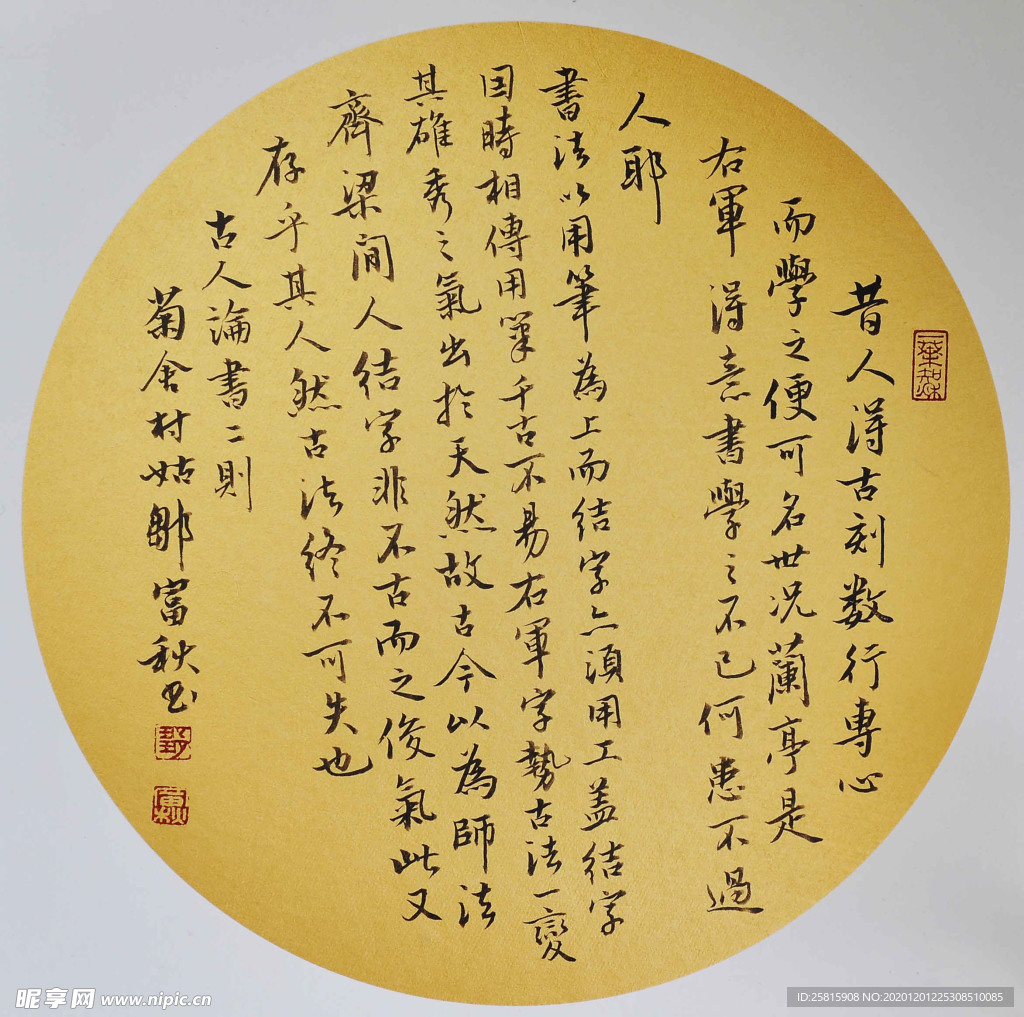 昔人得古刻数行專心
而學之便可名世况蘭亭是
右軍得意書學之不已何患不過
人耶
書法以用筆為上而結字亦須用工盖結字
因時相傳用筆千古不易右軍字勢古法一變
其雄秀之氣出於天然故古今以為師法
齊梁間人結字非不古而乏俊氣此又
存乎其人然古法終不可失也
古人論書二則
菊舍村姑鄒富秋书
一葉知秋
鄒
富秋
昵享网 www.nipic.cn
ID:25815908 NO:20201201225308510085